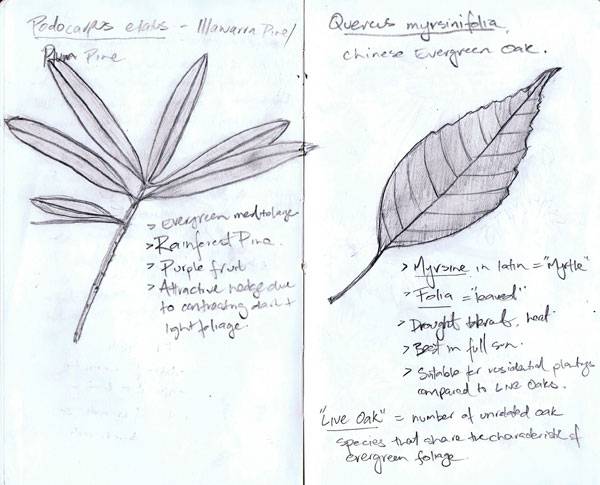 Podocarpus elatus - Illawarra Pine/
Plum Pine
> Evergreen med foliage
> Rainforest Pine.
> Purple fruit
> Attractive hedge due
to contrasting dark +
light foliage.
Quercus myrsinifolia,
Chinese Evergreen Oak.
> Myrsine in latin = "Myrtle"
> Folia = "leaved"
> Drought tolerant, heat.
> Best in full sun.
> Suitable for residential plantings
compared to Live Oaks.
"Live Oak" = number of unrelated oak
species that share the characteristic of
evergreen foliage.